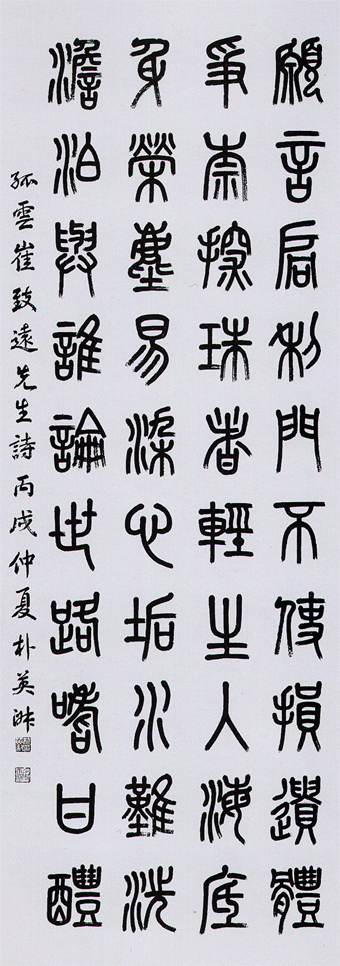 願言扃利門不使損遺體
爭奈探珠者輕生入海底
身榮塵易染心垢水難洗
澹泊與誰論世路嗜甘醴
孤雲崔致遠先生詩丙戌仲夏朴英